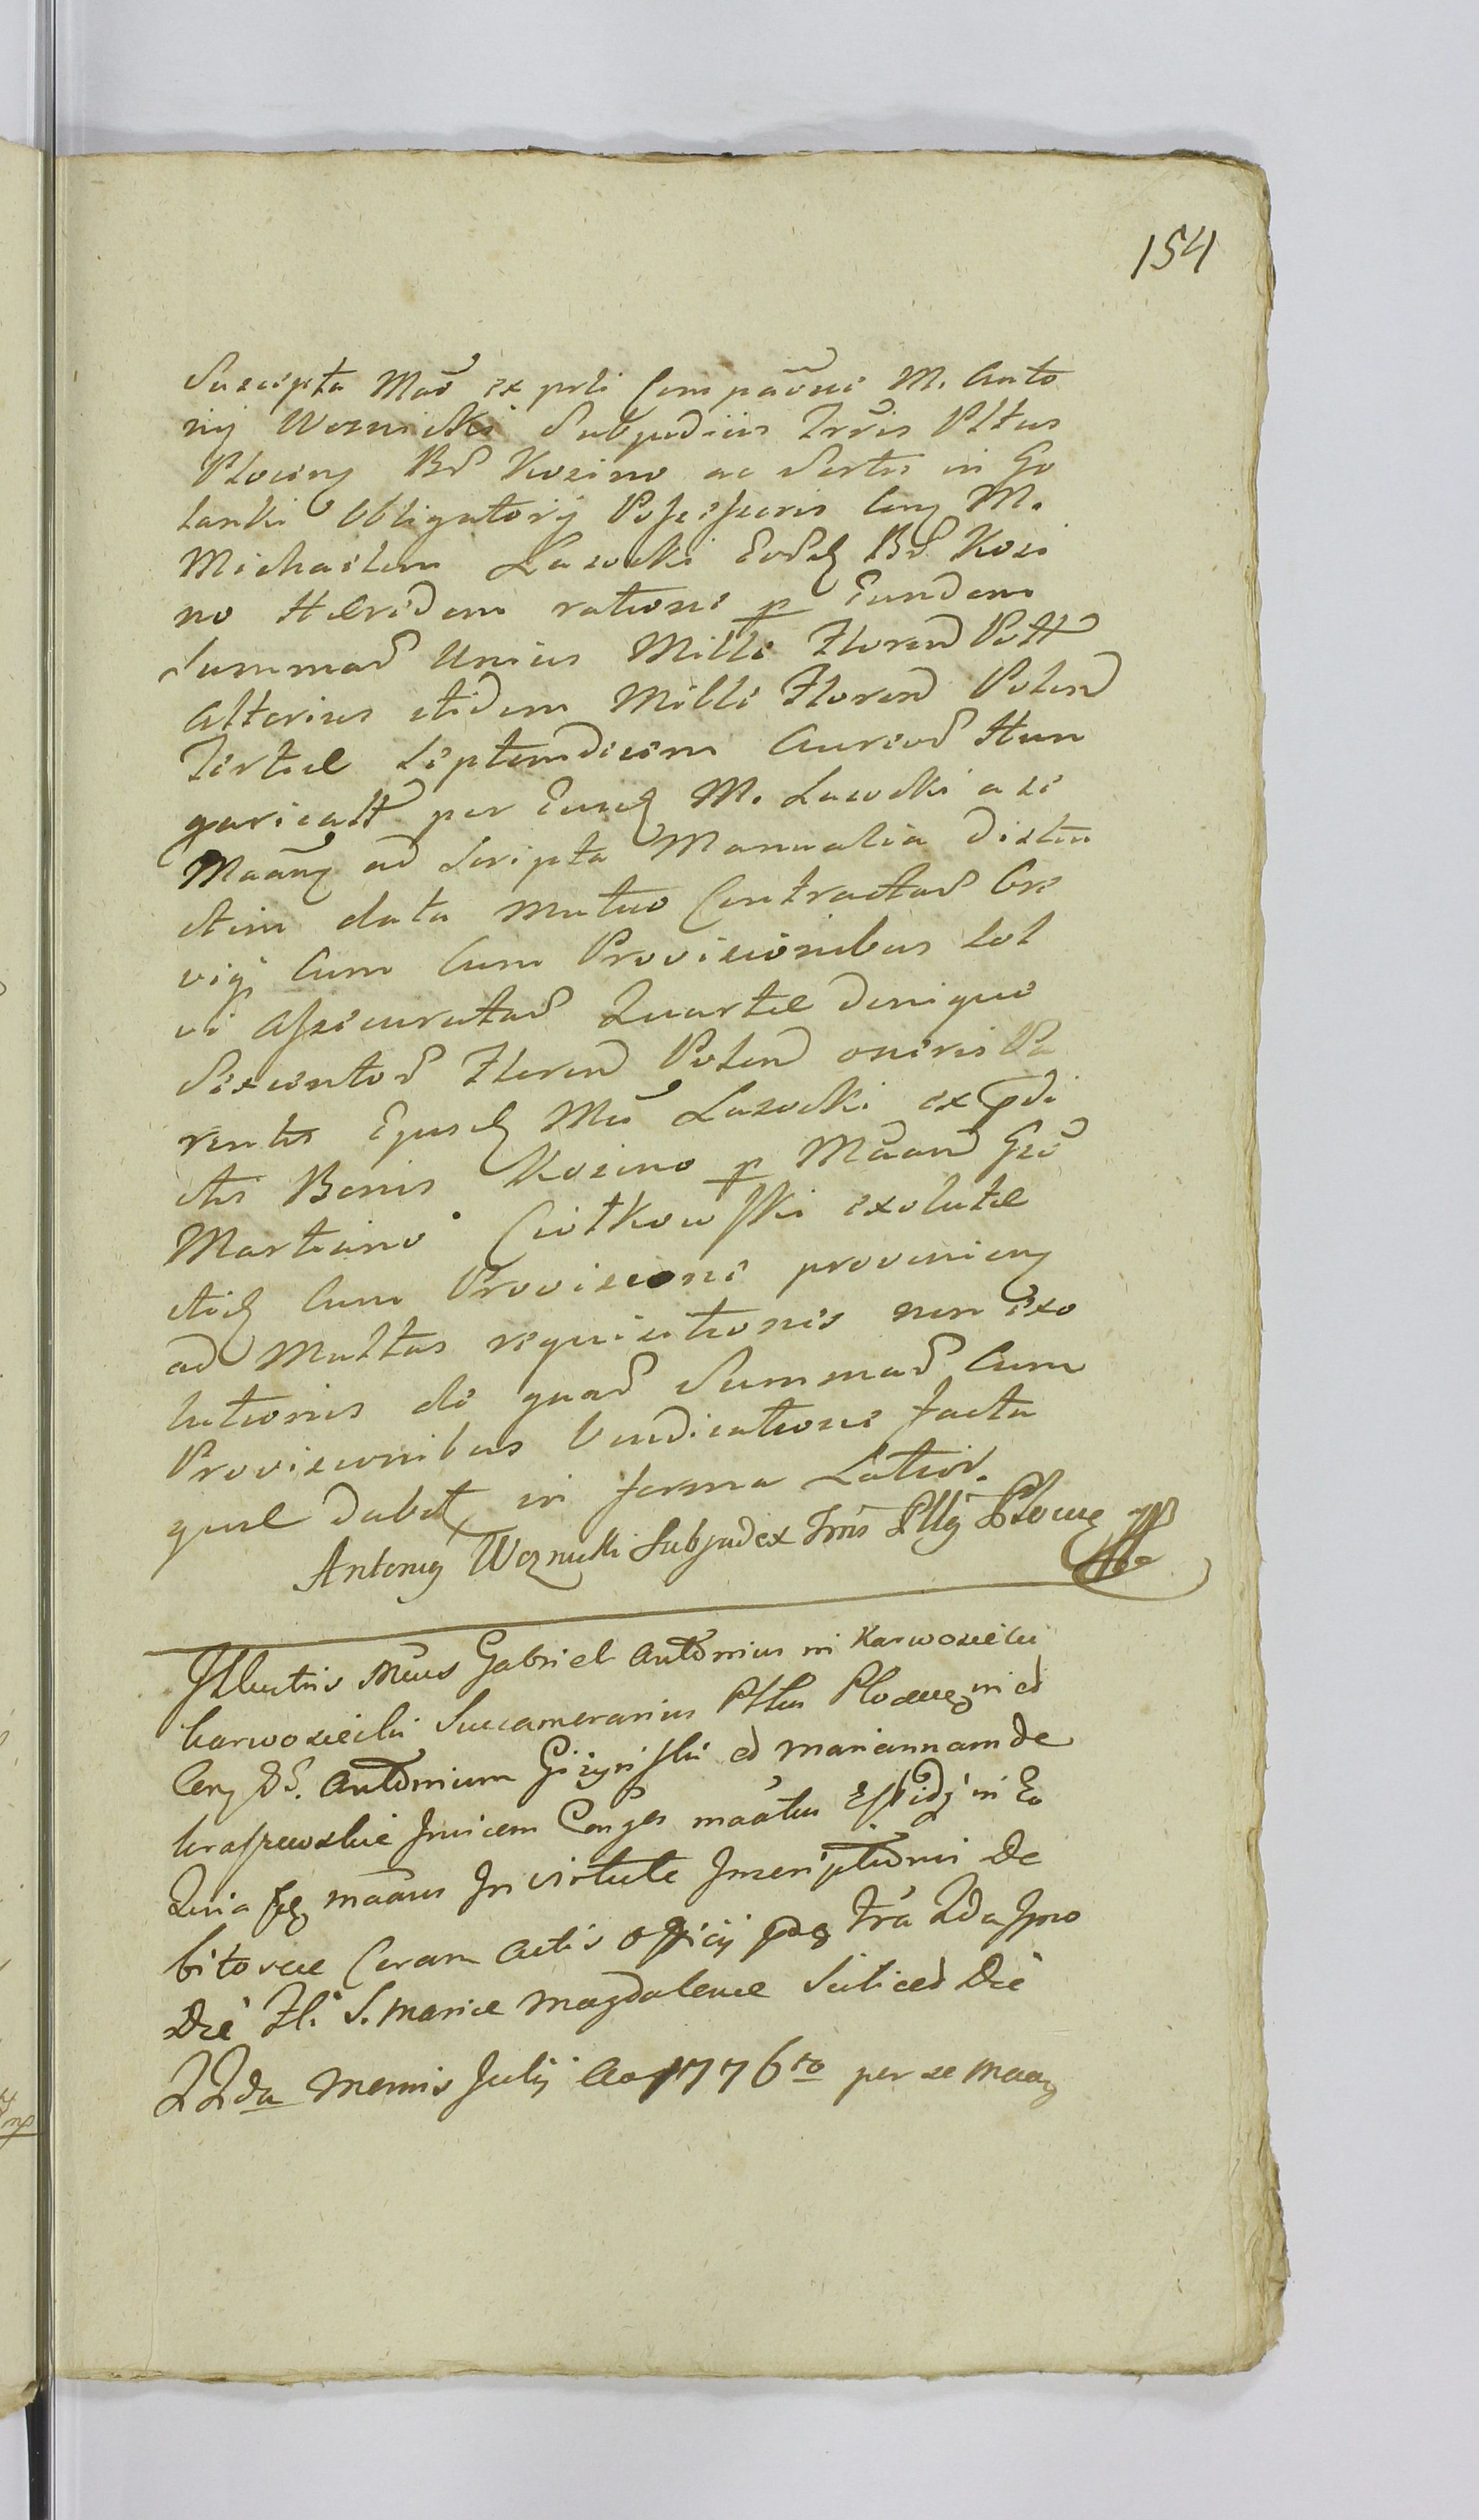 154
Suscepta Mdo ex prti Comparõne M. Anto
nij Woznicki Subjudicis Trris Pltus
Plocen Bd Kozino ac Sortis in Go
lanki Obligatorij Possessoris Cony M.
Michaelem Lasocki Eord Bd Kozi
no Hæredem ratione p Eundem
Summad Unius Mille Floren Poll
Alterius itidem Mille Floren Polon
Tertiæ Septemdecim Aureod Hun
garicall per Eund M. Lasocki a se
Maõn ad Scripta Manualia distin
ctim data mutuo Contractad bre
vig Cum Cum Provisionibus Sol
vi Assecuratad Quartæ denique
Sexcentod Floren Polon oneris Pa
rentis Ejusd Mci Lasocki ex pdi
ctis Bonis Kozino p Maand Gso
Martino Ciołkowski exolutæ
itid Cum Provisione provenien
ad Multas requisitiones non exo
lutionis de quad Summad Cum
Provisionibus Vendicatione facta
quæ dabit, in forma Latiori.
Antonig Woznicki Subjudex Trris Pltg Plocen mpp
Illustris Mcus Gabriel Antonius in Karwosieckie
Karwosiecki Succamerarius Pltus Plocen in et
Con Gd. Antonium Giżyński et Mariannam de
Kraszewskie Invicem Conges maatus Essidg in Eo
Quia Ssg maaus In virtute Inscriptionis De
bitoreæ Coram Actis Officij pdg fra 2da Ipso
Die Fti S. Mariæ Magdalenæ Scilicet Die
22da Mensis Julij Ao 1776to per se maan